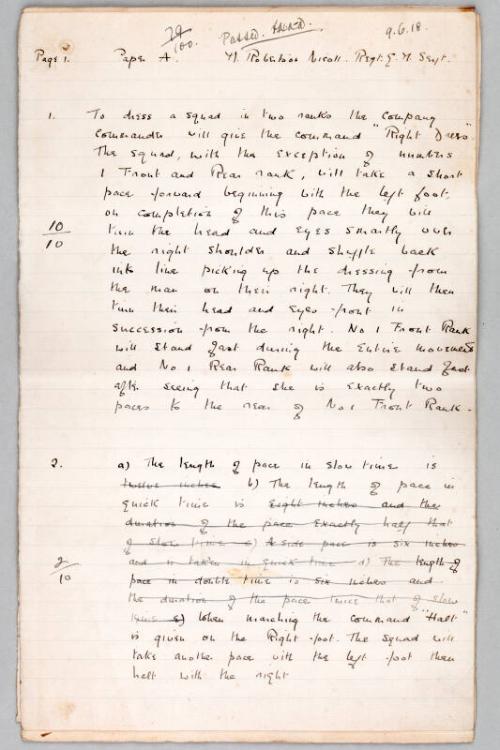 79
100.
Passed.
9.6.18.
Page 1. Paper A. M. Robertson Nicoll. Regt. Q. M. Sergt.
1. To dress a squad in two ranks the Company
Commander will give the command "Right Dress".
The squad, with the exception of numbers
1 Front and Rear rank, will take a short
pace forward beginning with the left foot,
on completion of this pace they will
10
10
turn the head and eyes smartly over
the right shoulder and shuffle back
into line picking up the dressing from
the man on their right. They will then
turn their head and eyes front in
succession from the right. No 1 Front Rank
will stand fast during the entire movement
and No 1 Rear Rank will also stand fast
after seeing that she is exactly two
paces to the rear of No 1 Front Rank.
2. a) The length of pace in slow time is
twelve inches b) The length of pace in
quick time is eight inches and the
duration of the pace exactly half that
of slow time c) A side pace is six inches
and is taken in quick time d) The length of
2
10
pace in double time is six inches and
the duration of the pace twice that of slow
time e) When marching the command "Halt"
is given on the Right foot. The squad will
take another pace with the left foot then
halt with the right